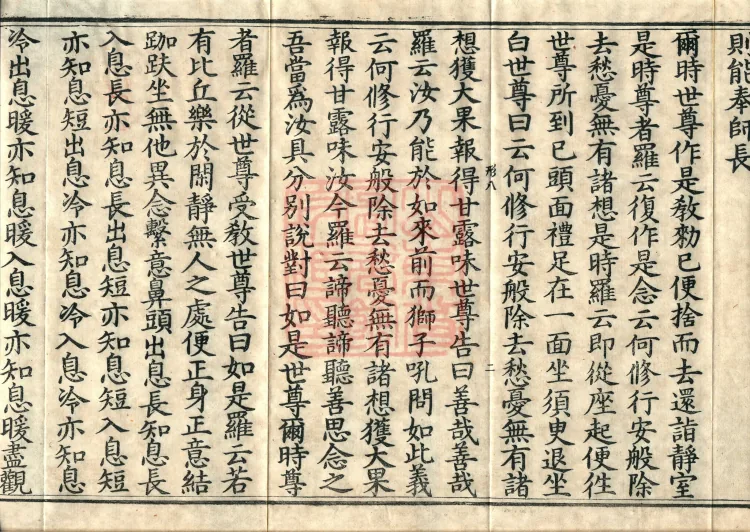 則能奉師長
爾時世尊作是教勑已便捨而去還詣靜室
是時尊者羅云復作是念云何修行安般除
去愁憂無有諸想是時羅云即從座起便往
世尊所到已頭面禮足在一面坐須臾退坐
白世尊曰云何修行安般除去愁憂無有諸
想獲大果報得甘露味世尊告曰善哉善哉
羅云汝乃能於如來前而獅子吼問如此義
云何修行安般除去愁憂無有諸想獲大果
報得甘露味汝今羅云諦聽諦聽善思念之
吾當為汝具分別說對曰如是世尊爾時尊
者羅云從世尊受教世尊告曰如是羅云若
有比丘樂於閑靜無人之處便正身正意結
跏趺坐無他異念繫意鼻頭出息長知息長
入息長亦知息長出息短亦知息短入息短
亦知息短出息冷亦知息冷入息冷亦知息
冷出息暖亦知息暖入息暖亦知息暖盡觀